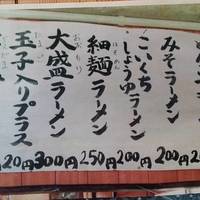 みそラーメン
こいくち
しょうゆラーメン
細麺ラーメン
ほそめん
大盛ラーメン
おおもり
玉子入りプラス
たまご
200円
200円
250円
300円
20円